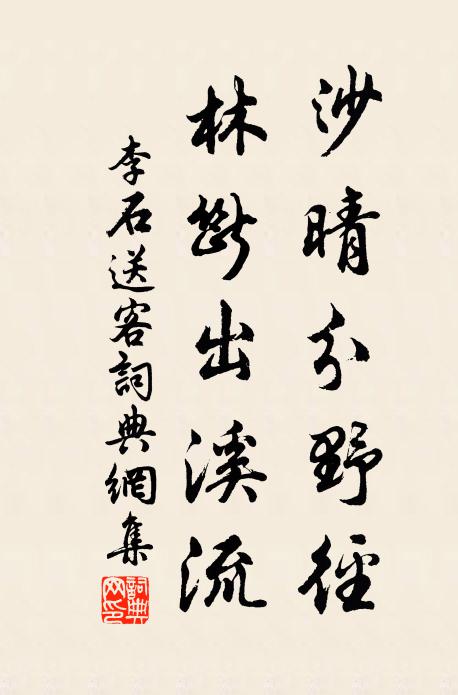 沙晴分野徑
林斷出溪流
李石送客詞典網集
詞典網印